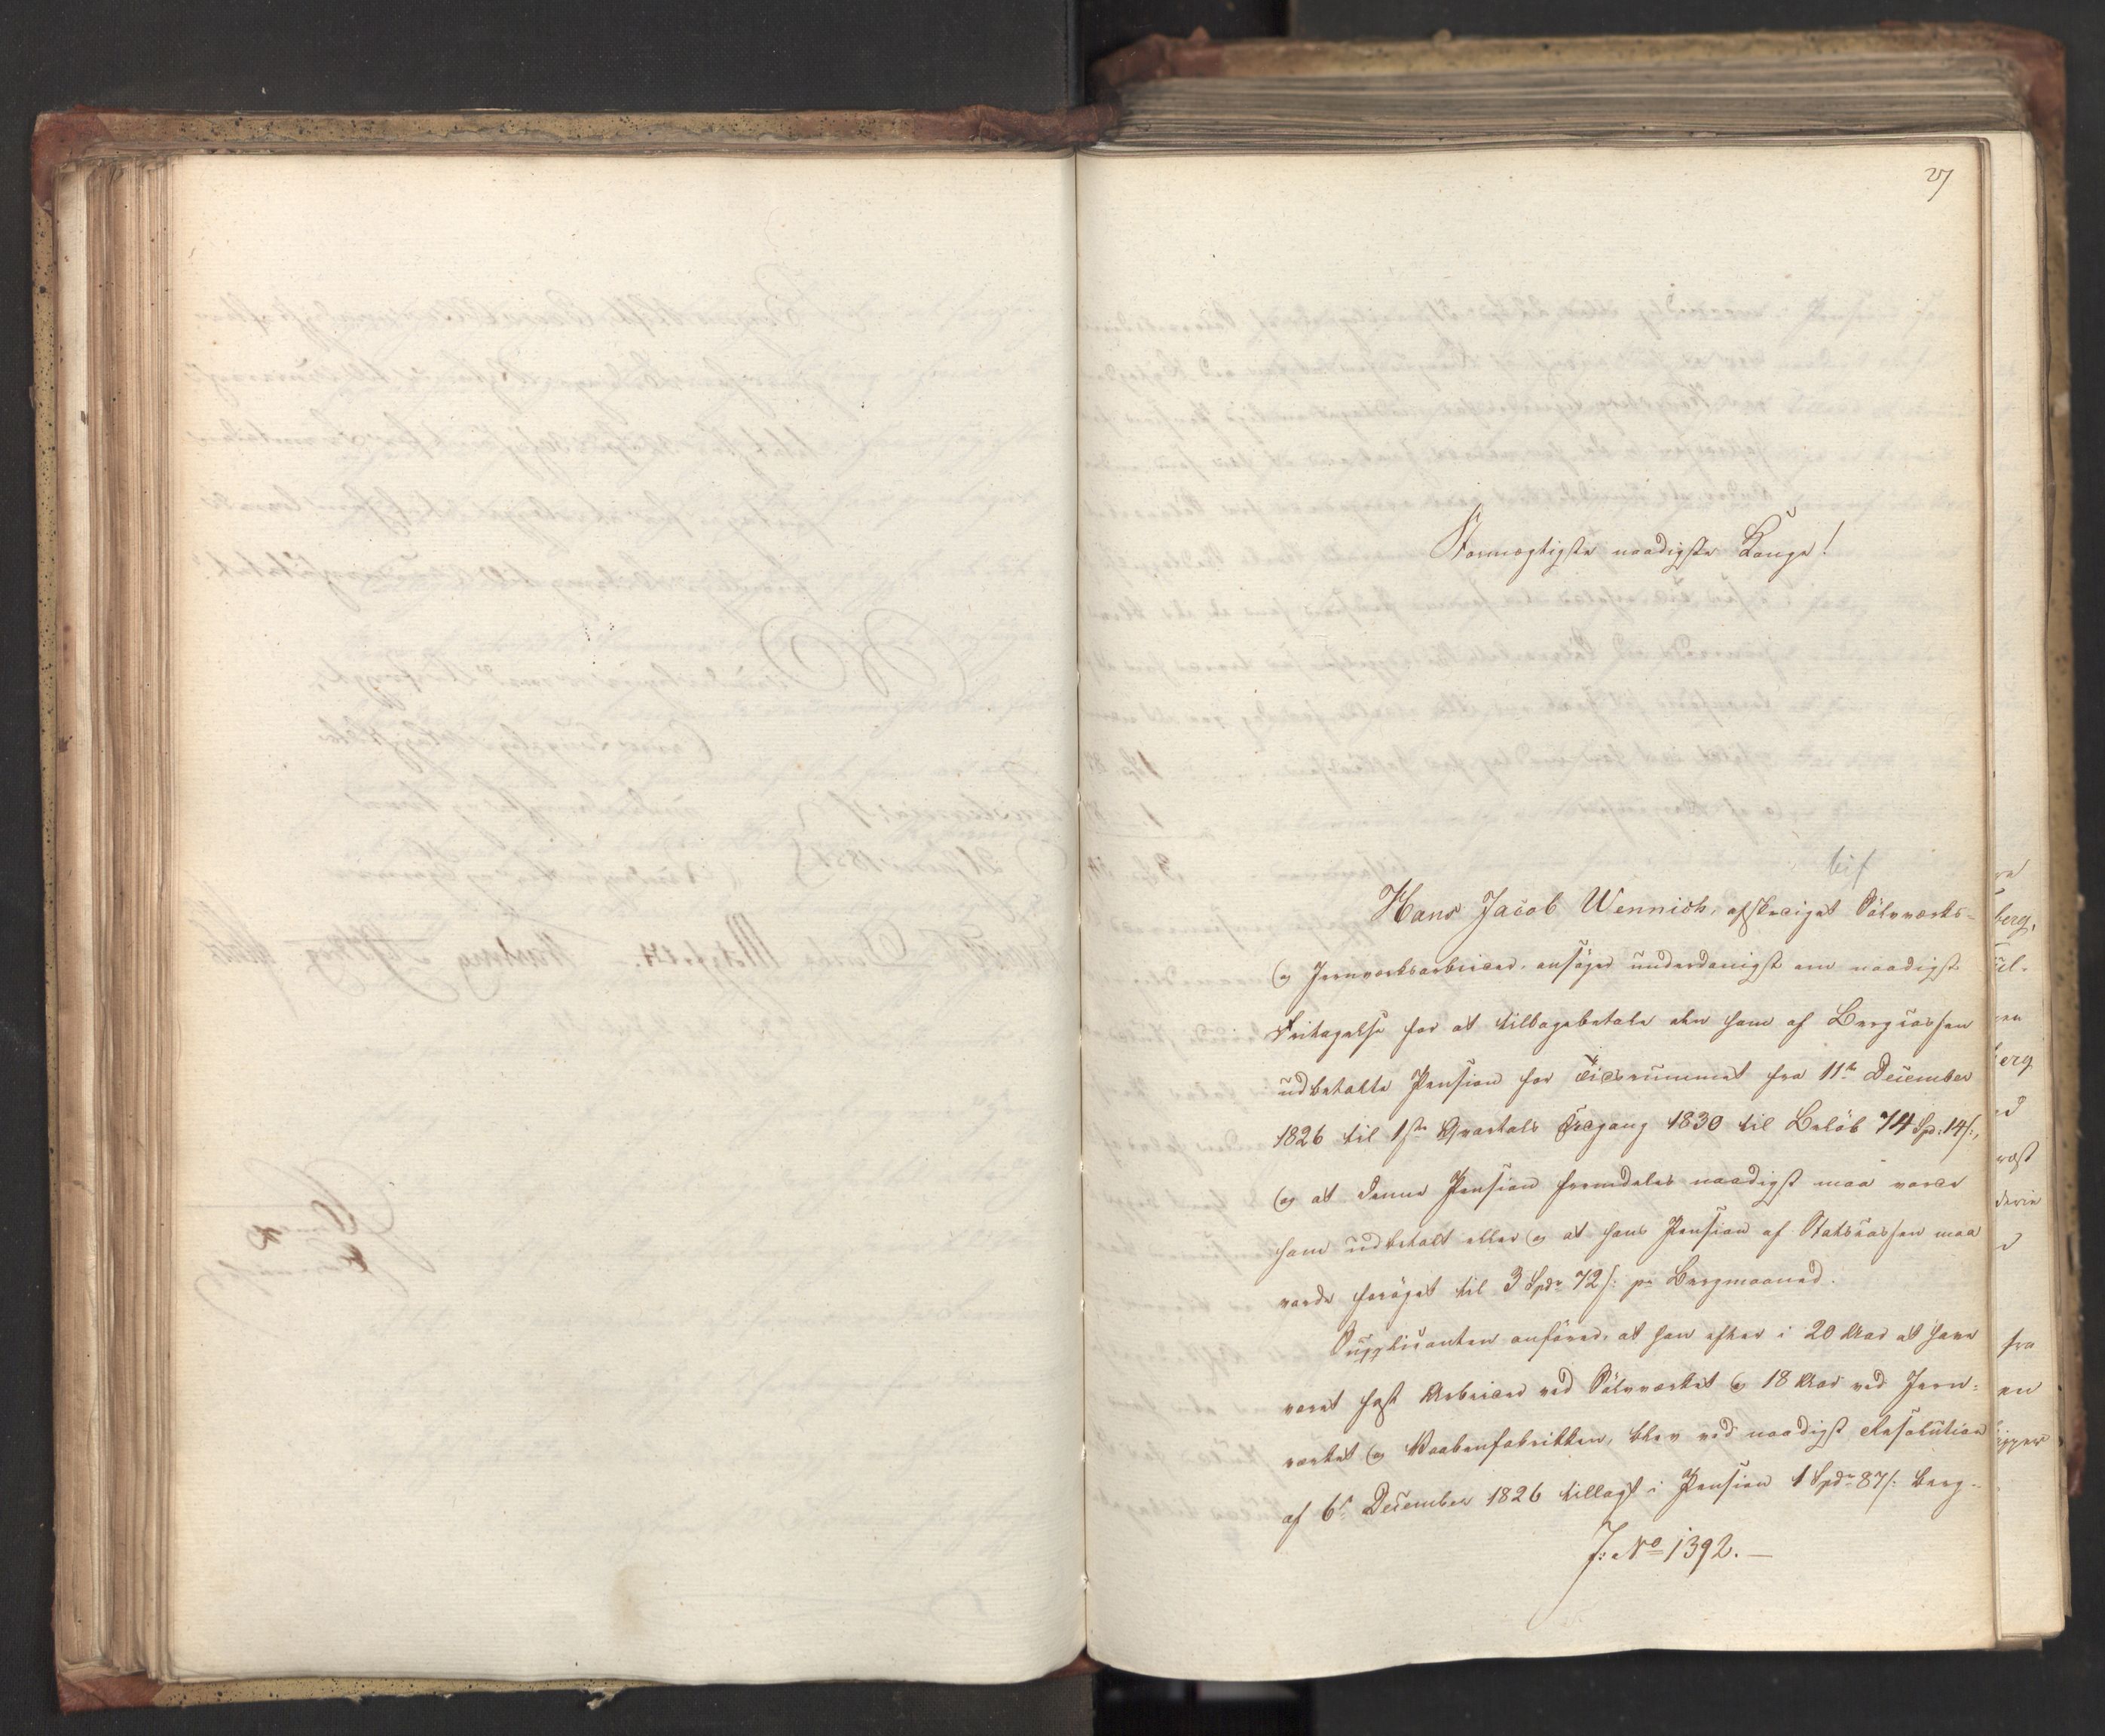 27
Stormægtigste naadigste Konge!
bif
Hans Jacob Wennich, afskediget Sölvværks-
og Jernværksarbeider, ansöger underdanigst om naadigst
Fritagelse for at tilbagebetale den ham af Bergcassen
udbetalte Pension for Tidsrummet fra 11te December
1826 til 1ste Qvartals Udgang 1830 til Belöb 74 Sp: 14 s:,
og at denne Pension fremdeles naadigst maa vorde
ham udbetalt eller og at hans Pension af Statscassen maa
vorde foröget til 3 Spdr 72 s: pr Bergmaaned.
Supplicanten anförer, at han efter i 20 Aar at have
været fast Arbeider ved Sölvværket og 18 Aar ved Jern-
værket og Vaabenfabrikken, blev ved naadigst Resolution
af 6te December 1826 tillagt i Pension 1 Spdr 87 s: Berg-
J: No 1392. —